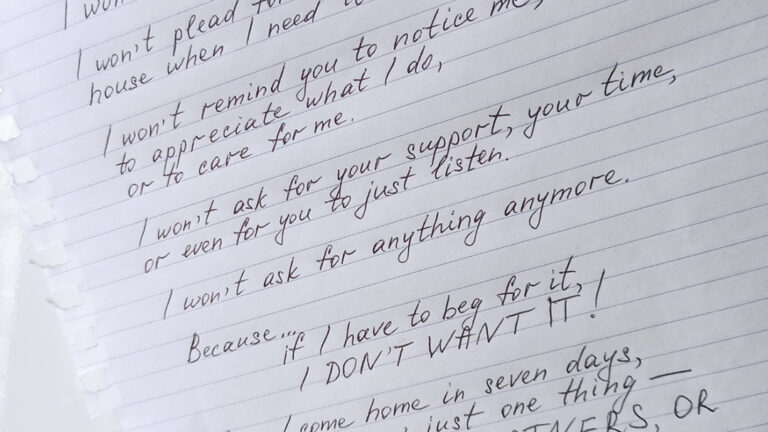 I won't plead
house when I need
I won't remind you to notice me,
to appreciate what I do,
or to care for me.
I won't ask for your support, your time,
or even for you to just listen.
I won't ask for anything anymore.
Because...
if I have to beg for it,
I DON'T WANT IT!
I come home in seven days,
just one thing —
OR